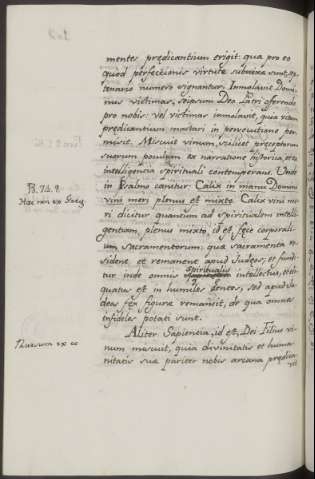 mentes prędicantium erigit: qua pro eo
quod perfectionis virtute subnixa sunt, sep-
tenario numero signantur. Inmolavit Domi-
nus victimas, seipsum Deo Patri offerendo
pro nobis: vel victimas inmolavit, quia vitam
prędicantium mactari in persecutione per-
misit. Miscuit vinum, scilicet preceptorum
suorum poculum ex narratione historica, et ex
intelligentia spirituali contemperans. Unde
in Psalmo canitur: Calix in manu Domini
Ps. 74. 8
vini meri plenus et mixto. Calix vini me-
Hæc non ex Greg.
ri dicitur quantum ad spiritualem intelli-
gentiam, plenus mixto, id est fęce corporali-
um Sacramentorum: quę sacramenta re-
sident et remanent apud Judęos; et fundi-
tur inde omnis spiritualis intellectus, et li-
quatus et in humiles gentes, sed apud Ju-
deos fęx figurę remansit, de qua omnes
infideles potati sunt.
Aliter Sapientia, id est, Dei Filius vi-
Rursum ex eo
num miscuit, quia divinitatis et huma-
nitatis suę pariter nobis arcana prędica-
vit